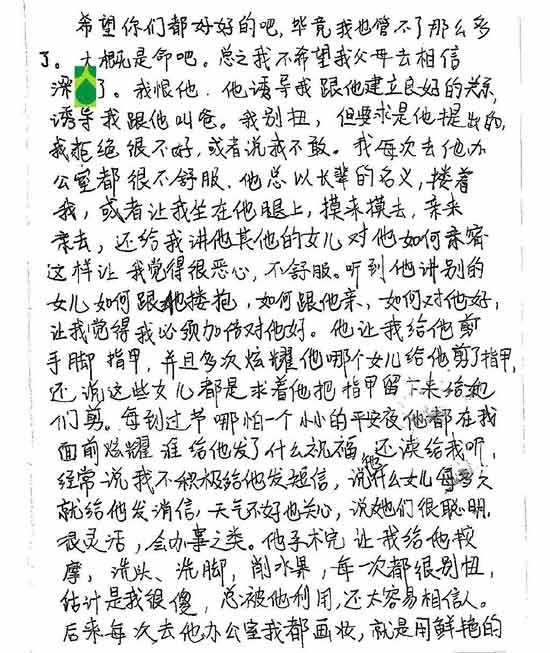 希望你们都好好的吧，毕竟我也管不了那么多
了。大概是命吧。总之我不希望我父母去相信
深了。我恨他．他诱导我跟他建立良好的关系，
诱导我跟他叫爸。我别扭，但要求是他提出的，
我拒绝很不好，或者说我不敢。我每次去他办
公室都很不舒服、他总以长辈的名义，搂着
我，或者让我坐在他腿上，摸来摸去，亲来
亲去，还给我讲他其他的女儿对他如何亲密
这样让我觉得很恶心，不舒服。听到他讲别的
女儿如何跟他搂抱，如何跟他亲、如何对他好，
让我觉得我必须加倍对他好。他让我给他剪
手脚指甲，并且多次炫耀他哪个女儿给他剪了指甲，
还说这些女儿都是求着他把指甲留下来给她
们剪。每到过节哪怕一个小小的平安夜他都在我
面前炫耀谁给他发了什么祝福，还读给我听，
经常说我不积极给他发短信，说他什么女儿每多久
就给他发消信，天气不好也关心，说她们很聪明，
很灵活，会办事之类。他手术完让我给他按
摩，洗头、洗脚，削水果，每一次都很别扭，
估计是我很傻，总被他利用，还太容易相信人。
后来每次去他办公室我都画妆，就是用鲜艳的